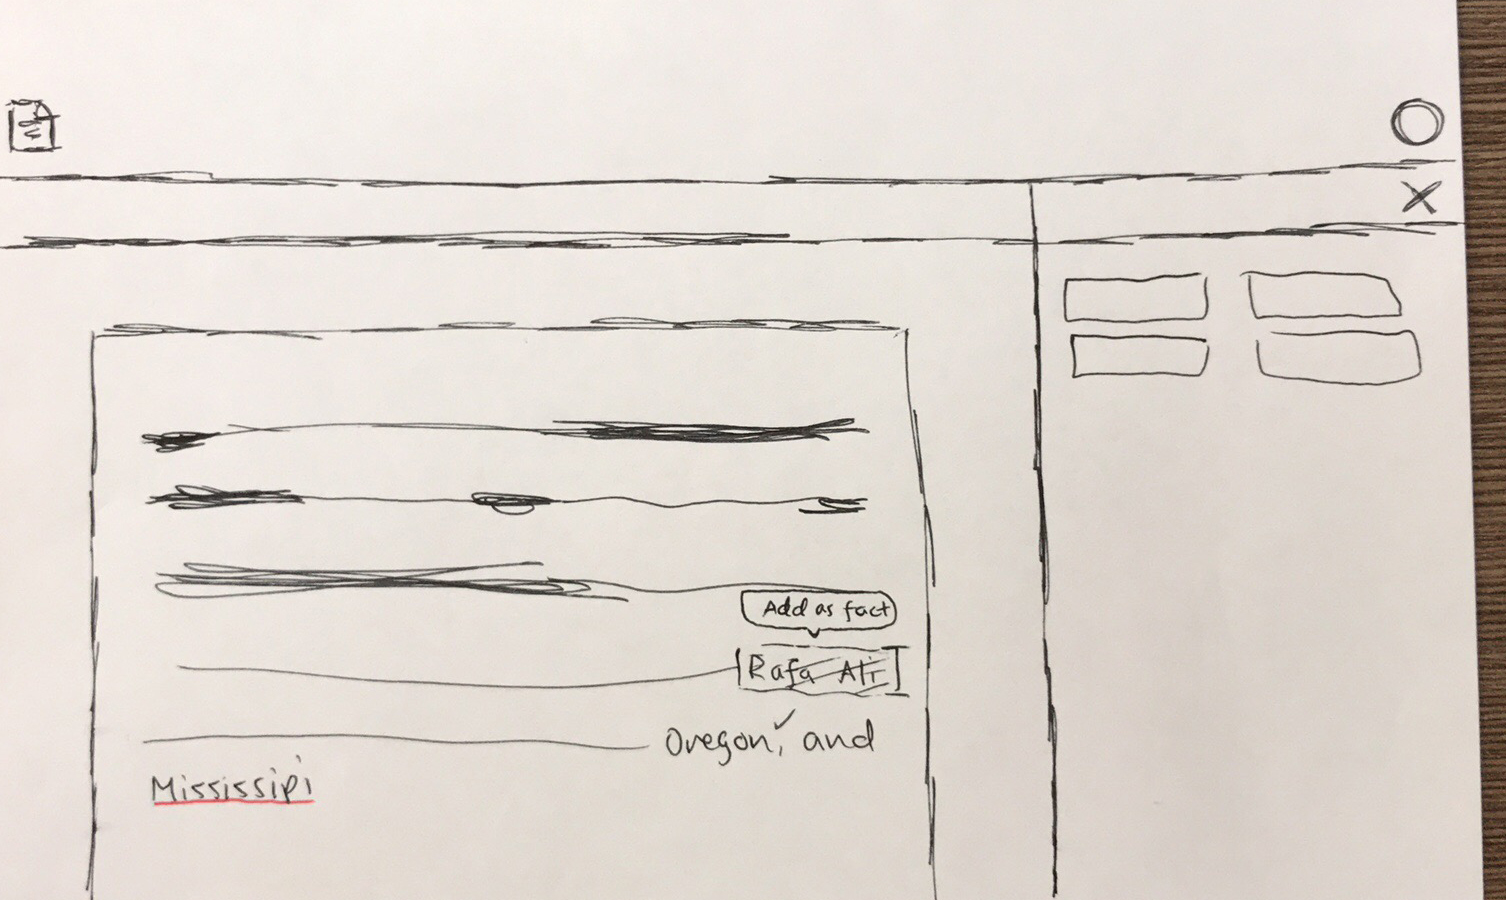 Add as fact
Rafa Ali
Oregon, and
Mississipi